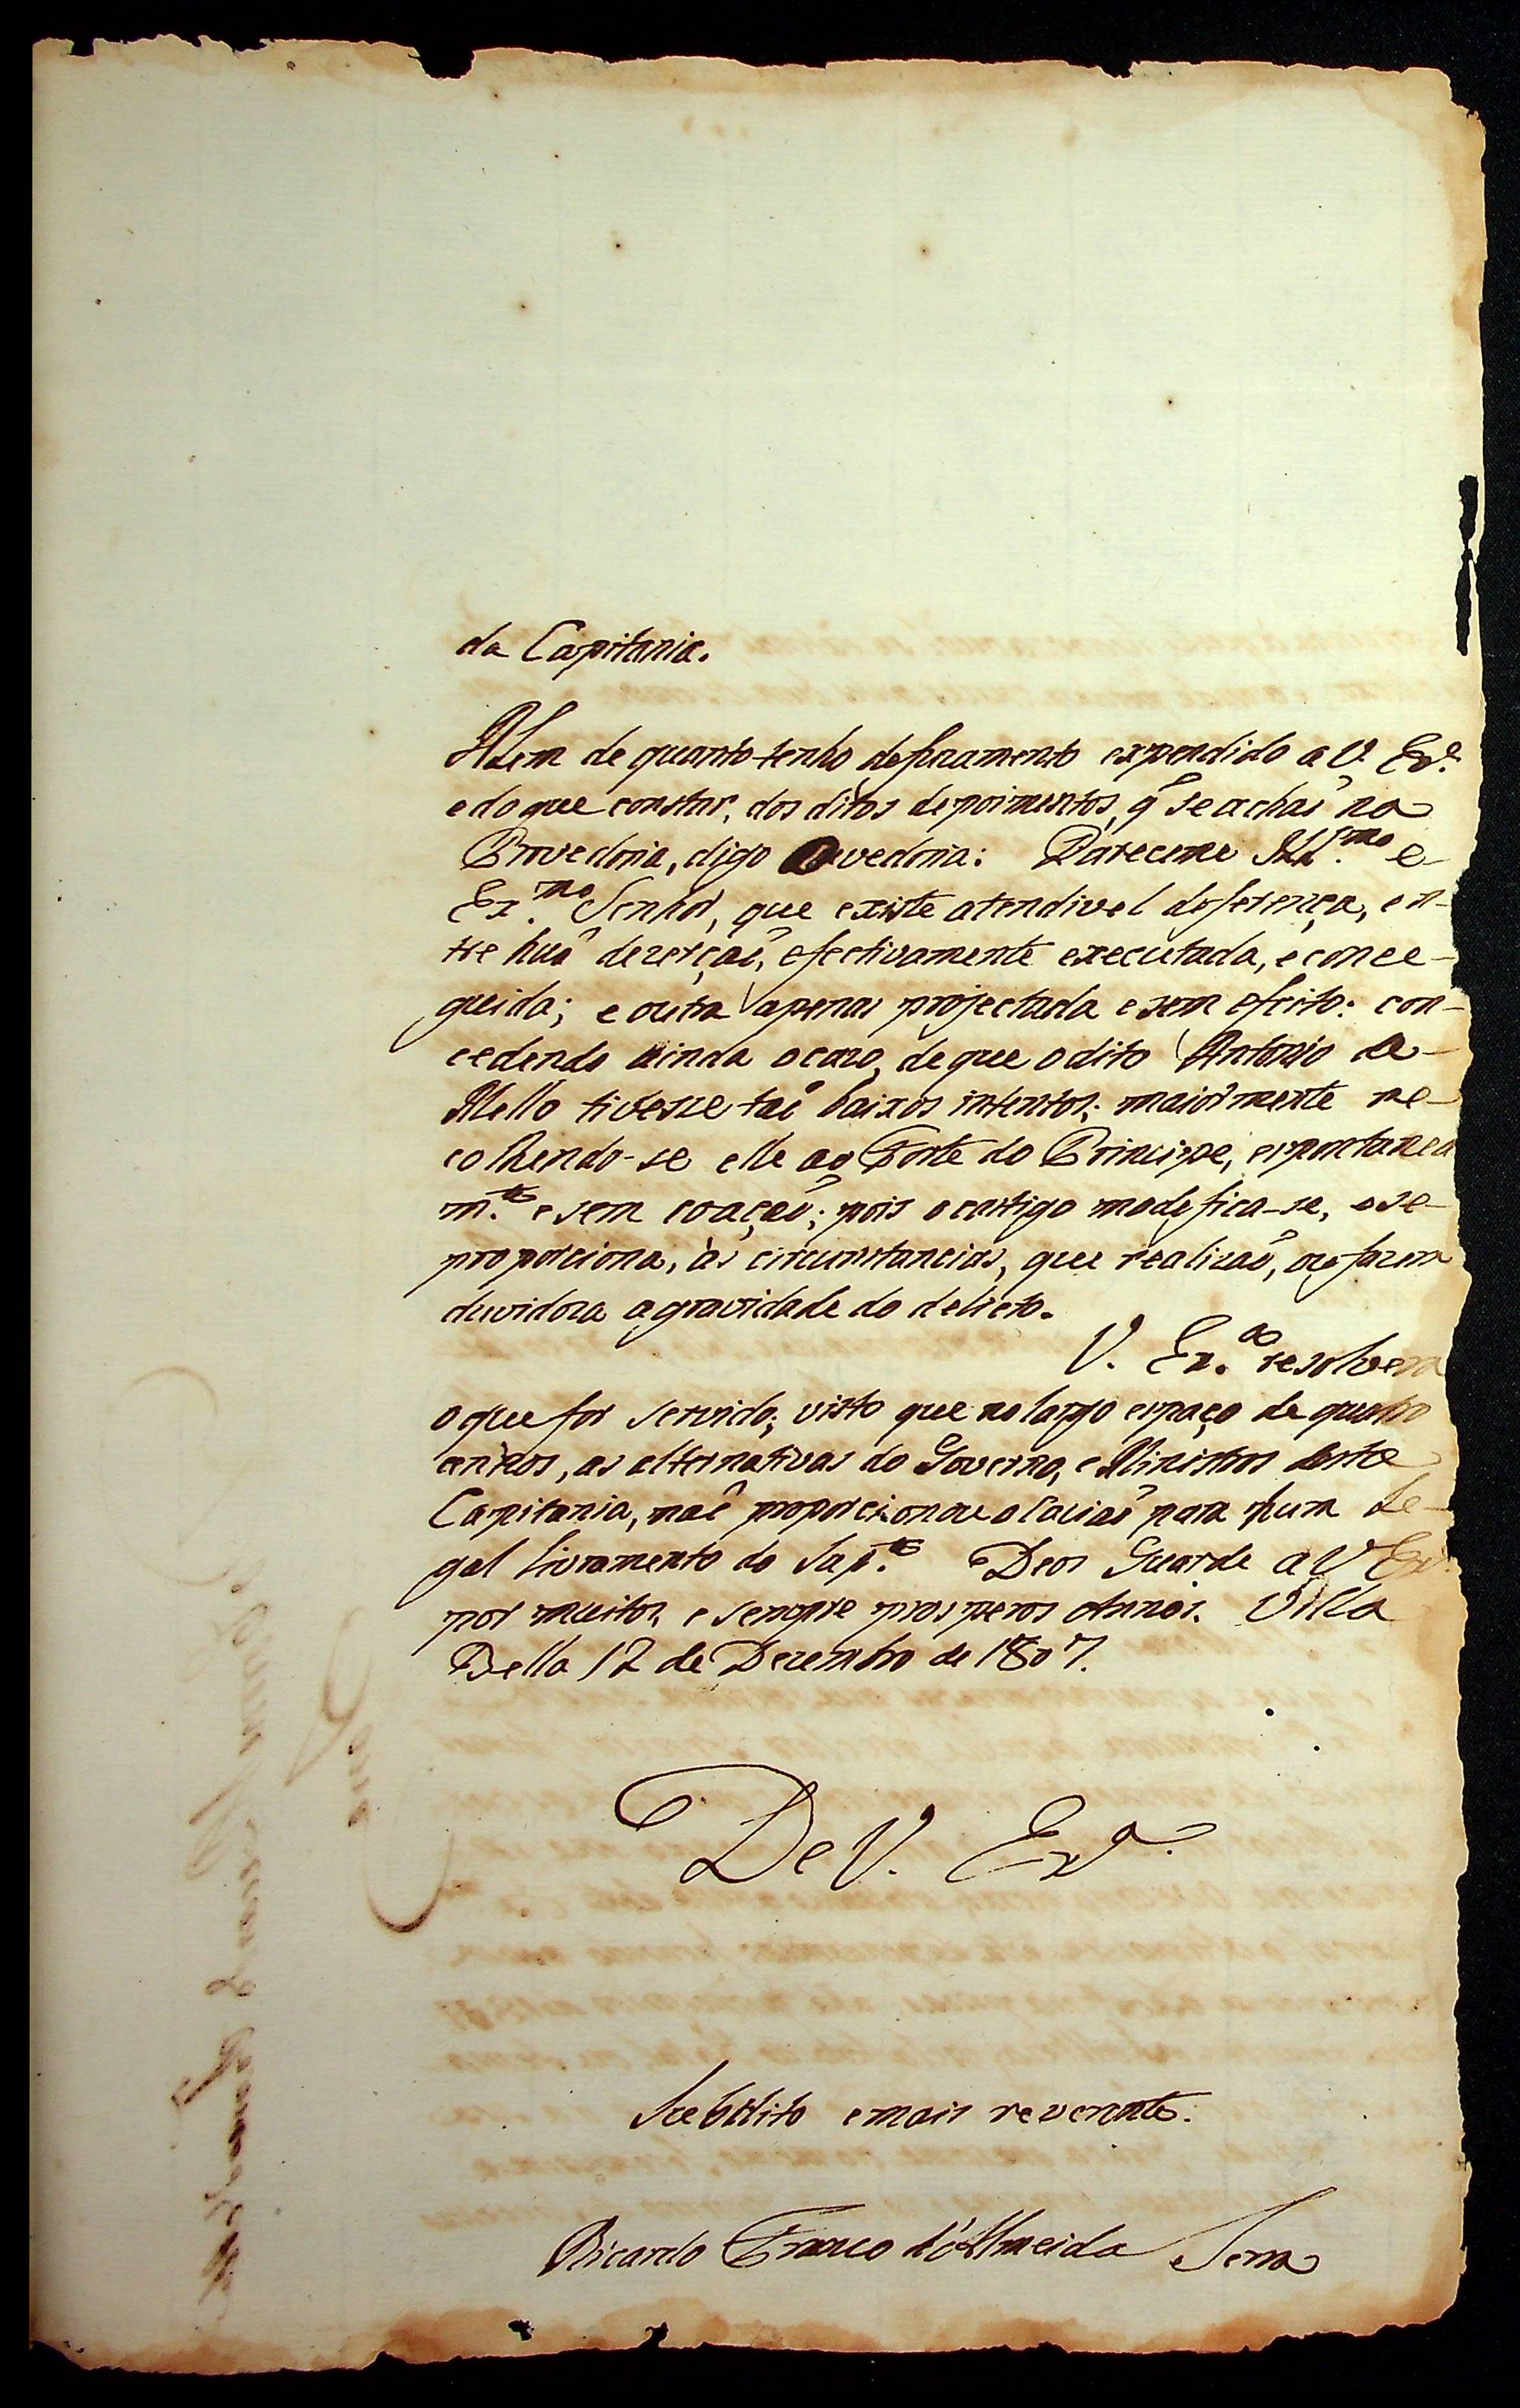 da Capitania.
Alem de quanto tenho difuzamento expendido a V. Ex.ª
e do que constar, dos ditos depoimentos, q̃ se achaõ na
Provedoria, digo Ouvedoria: Pareceme Ill.mo e
Ex.mo Senhor, que existe atendivel deferença, en-
tre huã dezerçaõ, efectivamente executada, e conce-
guida; e outra apenas projectada e sem efeito: con-
cedendo ainda o cazo, de que o dito Antonio de
Mello tivesse taõ baixos intentos; maiormente re-
colhendo-se elle ao Forte do Principe, espontanea
m.te e sem coaçaõ; pois o castigo modefica-se, e se
proporciona, às circumstancias, que realizaõ, ou fazem
duvidoza a gravidade do delicto.
V. Ex.ª resolvera
o que for servido; visto que no largo espaço de quatro
annos, as alternativas do Governo, e Ministros desta
Capitania, naõ proporcionou ocaziaõ para hum Le-
gal Livramento do Sup.te Deos Guarde a V Ex.ª
por muitos, e sempre prosperos Annos. Villa
Bella 12 de Dezembro de 1807.
De V. Ex.ª
Subdito e mais reverente.
Ricardo Franco d'Almeida Serra